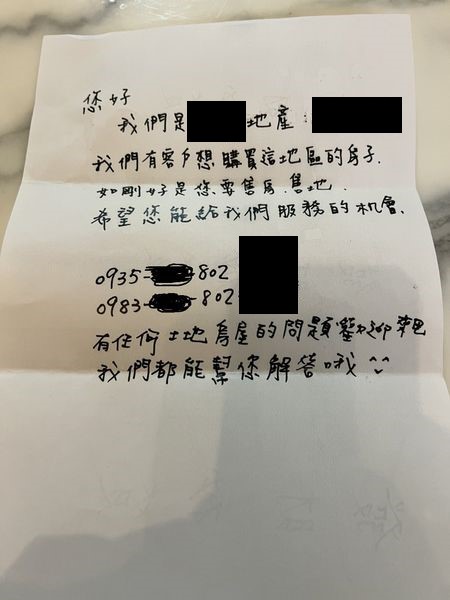 您好
我們是 地產:
我們有客戶想購買這地區的房子.
如剛好是您要售房.售地.
希望您能給我們服務的机會.
0935- 802
0983- -802
有任何土地房屋的問題 聯絡
我們都能幫您解答哦^^